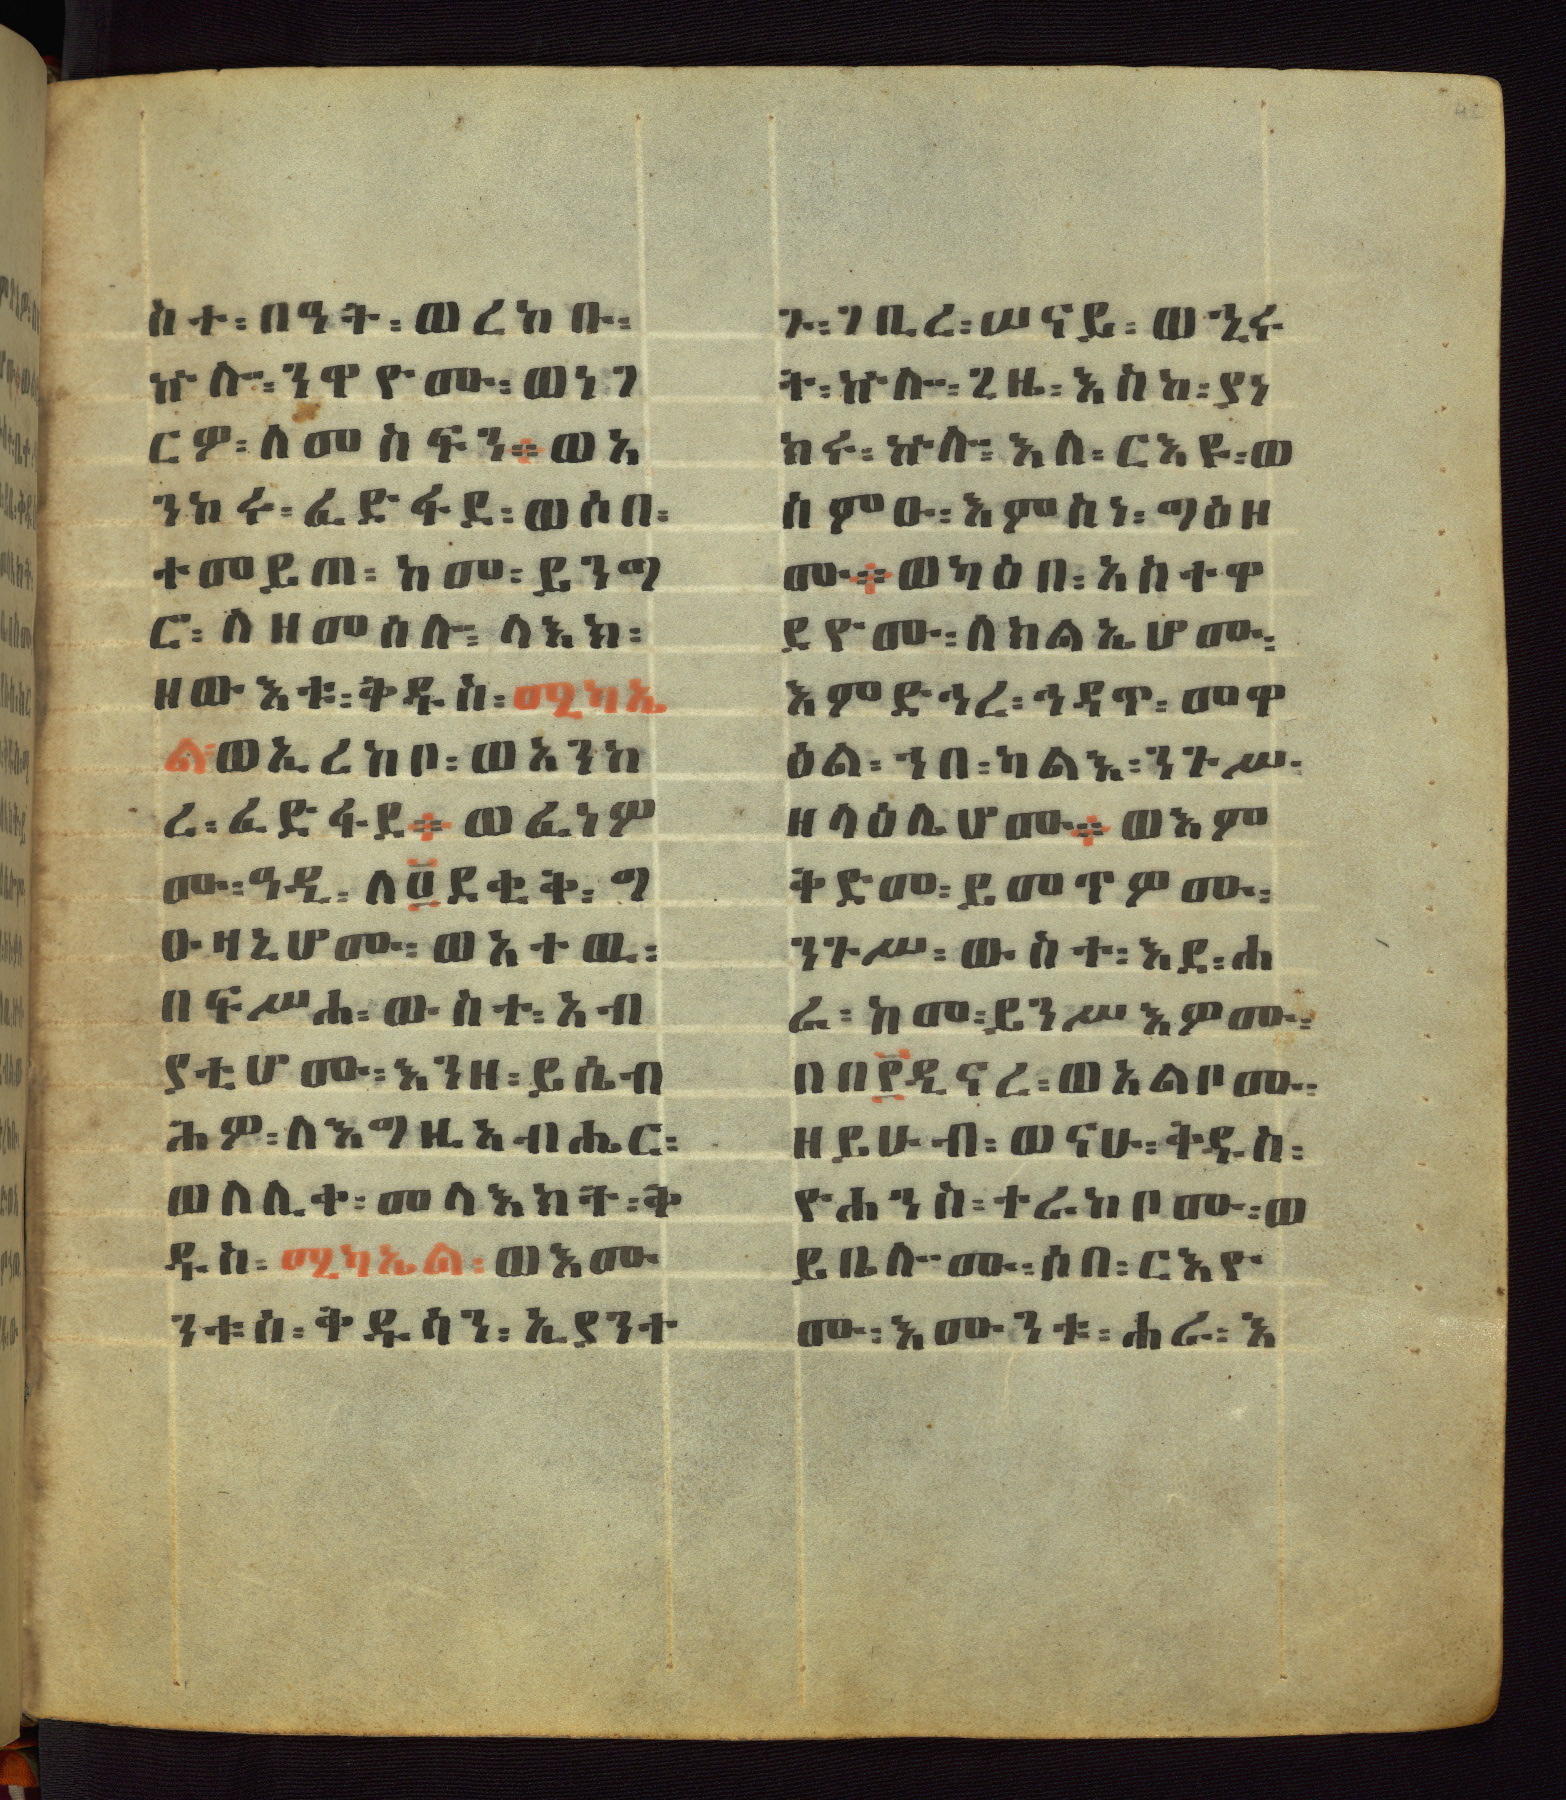 ስተ፡በዓት፡ወረከቡ፡
ኵሎ፡ንዋዮሙ፡ወነገ
ርዎ፡ለመስፍን፨ወአ
ንከሩ፡ፈድፋደ፡ወሶበ፡
ተመይጠ፡ከመ፡ይንግ
ር፡ለዘመሰሎ፡ላእክ፡
ዘውእቱ፡ቅዱስ፡ሚካኤ
ል፡ወኢረከቦ፡ወአንከ
ረ፡ፈድፋደ፨ወፈነዎ
ሙ፡ዓዲ፡ለ፬ደቂቅ፡ግ
ዑዛኒሆሙ፡ወአተዉ፡
በፍሥሐ፡ውስተ፡አብ
ያቲሆሙ፡እንዘ፡ይሴብ
ሕዎ፡ለእግዚአብሔር፡
ወለሊቀ፡መላእክት፡ቅ
ዱስ፡ሚካኤል፡ወእሙ
ንቱሰ፡ቅዱሳን፡ኢያንተ
ጉ፡ገቢረ፡ሠናይ፡ወኂሩ
ት፡ኵሎ፡ጊዜ፡እስከ፡ያነ
ክሩ፡ኵሎ፡እለ፡ርእዩ፡ወ
ሰምዑ፡እምስነ፡ግዕዞ
ሙ፨ወካዕበ፡አስተዋ
ደዮሙ፡ሰክልኤሆሙ፡
እምድኅረ፡ኅዳጥ፡መዋ
ዕል፡ኀበ፡ካልእ፡ንጉሥ፡
ዘላዕሌሆሙ፨ወእም
ቅድመ፡ይመጥዎሙ፡
ንጉሥ፡ውስተ፡እደ፡ሐ
ራ፡ከመ፡ይንሥእዎሙ፡
በበ፻ዲናረ፡ወአልቦሙ፡
ዘይሁብ፡ወናሁ፡ቅዱስ፡
ዮሐንስ፡ተራከቦሙ፡ወ
ይቤሎሙ፡ሶበ፡ርእዮ
ሙ፡እሙንቱ፡ሐራ፡እ